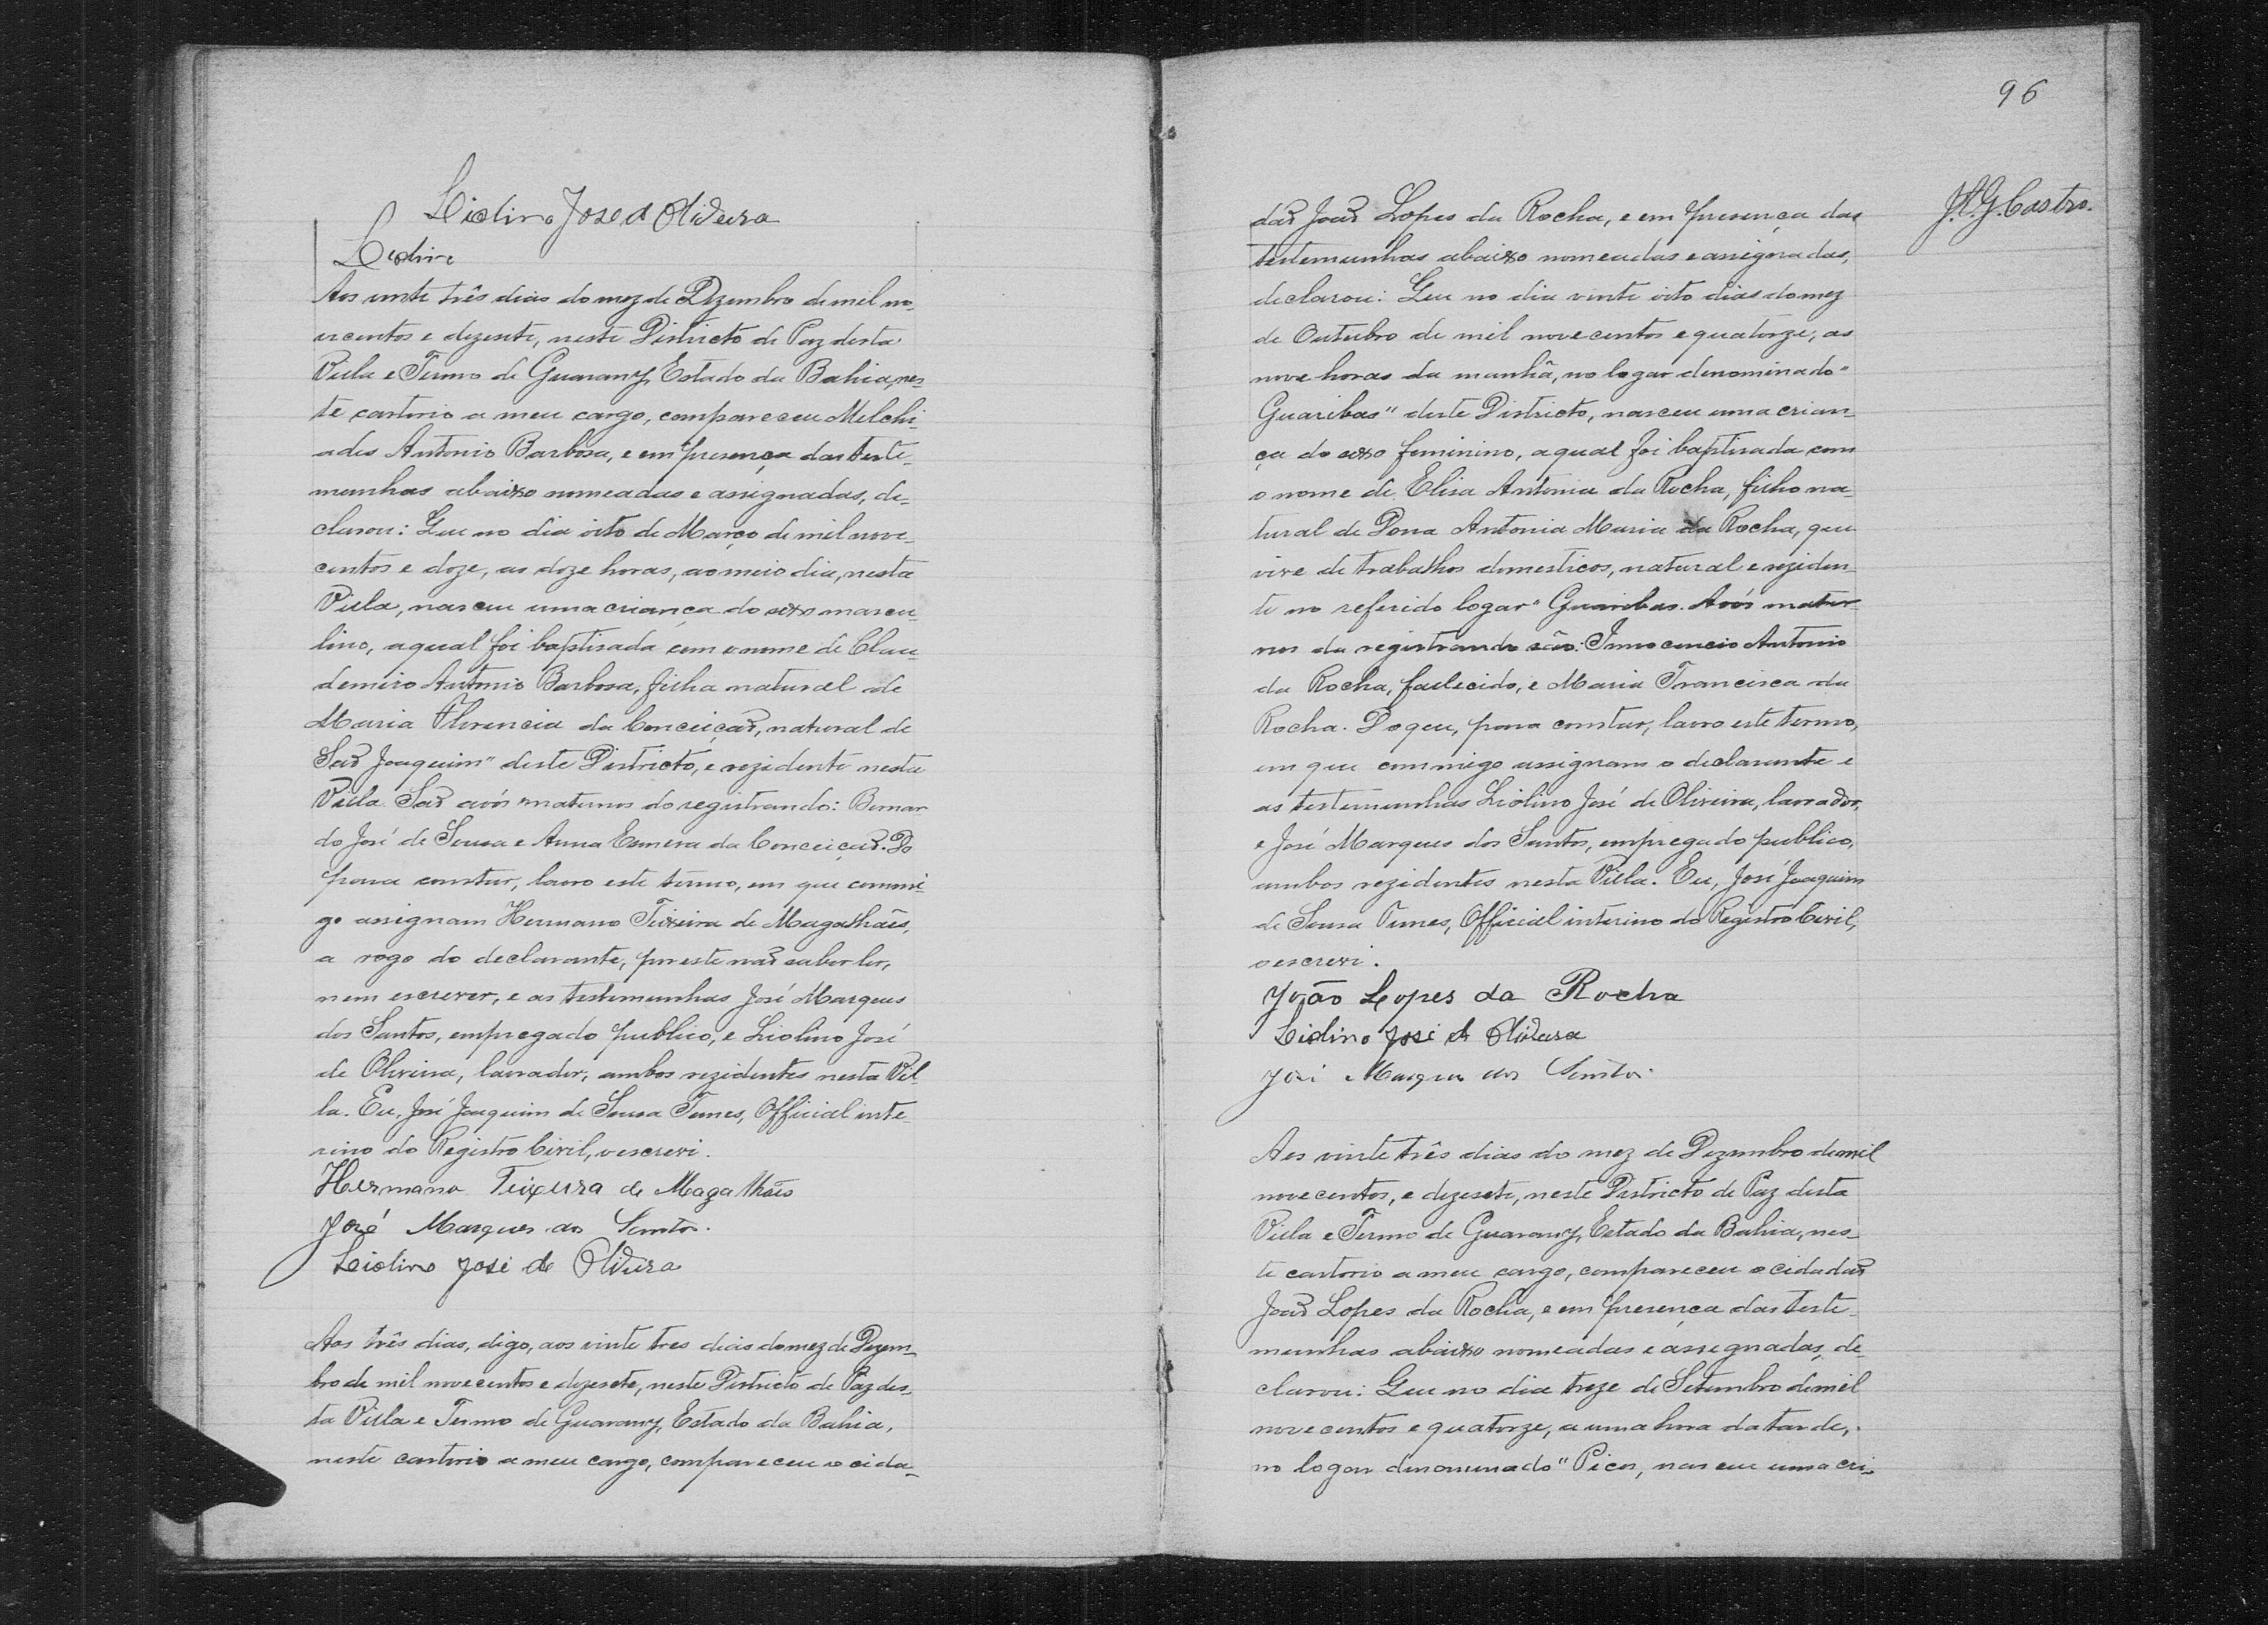 Liolino Jose d Olideira
Liolin
Aos vinte três dias do mez de Dezembro de mil no-
vecentos e dezesete, neste Districto de Paz desta
Villa e Termo de Guarany, Estado da Bahia, nes-
te cartorio a meu cargo, compareceu Melchi-
ades Antonio Barbosa, e em presença das teste-
munhas abaixo nomeadas e assignadas, de-
clarou: Que no dia oito de Março de mil nove-
centos e doze, as doze horas, ao meio dia, nesta
Villa, nasceu uma criança do sexo mascu-
lino, a qual foi baptisada com o nome de Clau-
demiro Antonio Barbosa, filha natural de
Maria Florencia da Conceiçaõ, natural de
Saõ Joaquim" deste Districto, e rezidente nesta
Villa. Saõ avós maternos do registrando: Bernar
do José de Sousa e Anna Esmera da Conceiçaõ. Do
para constar, lavro este termo, em que commi-
go assignam Hermano Teixeira de Magalhães,
a rogo do declarante, por este naõ saber ler,
nem escrever, e as testemunhas José Marques
dos Santos, empregado publico, e Liolino José
de Oliveira, lavrador, ambos rezidentes nesta Vil
la. Eu, José Joaquim de Sousa Tunes, Official inte-
rino do Registro Civil, o escrevi.
Hermano Teixeira de Magalhães
José Marques dos Santos.
Liolino José de Olideira
Aos três dias, digo, aos vinte tres dias do mez de Dezem-
bro de mil novecentos e dezesete, neste Districto de Paz des-
ta Villa e Termo de Guarany, Estado da Bahia,
neste cartorio a meu cargo, compareceu o cida-
96
J. C. G. Castro.
daõ Joaõ Lopes da Rocha, e em presença das
testemunhas abaixo nomeadas e assignadas,
declarou: Que no dia vinte oito dias do mez
de Outubro de mil novecentos e quatorze, as
nove horas da manhã, no logar denominado "
Guaribas" deste Districto, nasceu uma crian-
ça do sexo feminino, a qual foi baptisada com
o nome de Elisa Antonia da Rocha, filho na-
tural de Dona Antonia Maria da Rocha, que
vive de trabalhos domesticos, natural e reziden-
te no referido logar "Guaribas. Avós mater
nos da registrando são: Innocencio Antonio
da Rocha, fallecido, e Maria Francisca da
Rocha. Do que, para constar, lavro este termo,
em que commigo assignam o declarante e
as testemunhas Liolino José de Oliveira, lavrador,
e José Marques dos Santos, empregado publico,
ambos rezidentes nesta Villa. Eu, José Joaquim
de Sousa Tunes, Official interino do Registro Civil,
o escrevi.
João Lopes da Rocha
Liolino José d Olideira
José Marques dos Santos.
Aos vinte três dias do mez de Dezembro de mil
novecentos, e dezesete, neste Districto de Paz desta
Villa e Termo de Guarany, Estado da Bahia, nes-
te cartorio a meu cargo, compareceu o cidadaõ
Joaõ Lopes da Rocha, e em presença das teste-
munhas abaixo nomeadas e assignadas, de-
clarou: Que no dia treze de Setembro de mil
novecentos e quatorze, a uma hora da tarde,
no logar denominado "Picos, nasceu uma cri-